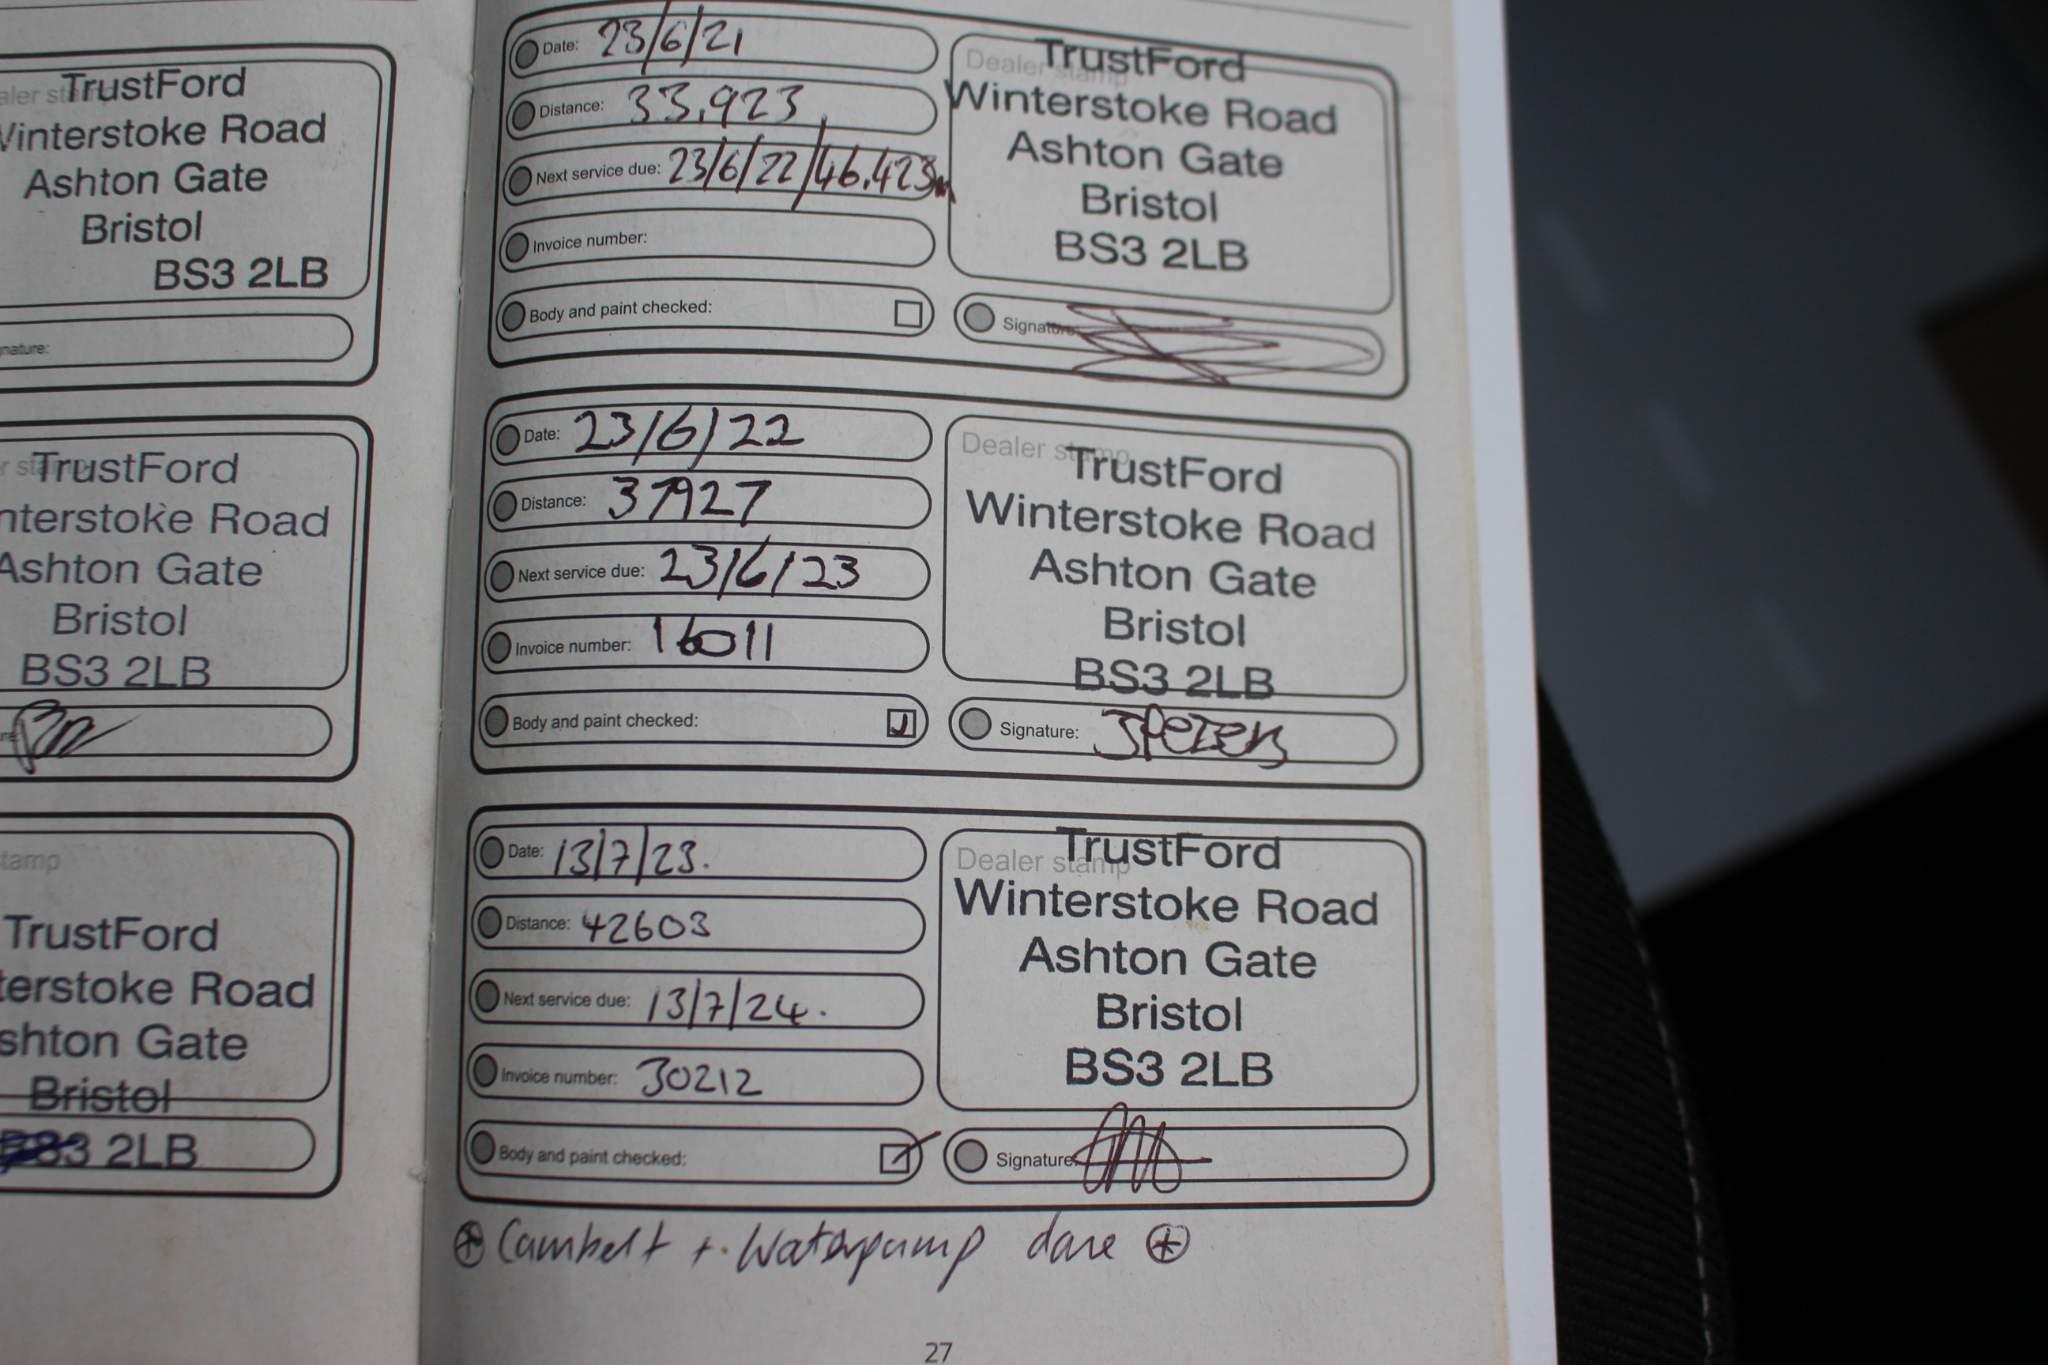 aler stamp
TrustFord
Winterstoke Road
Ashton Gate
Bristol
BS3 2LB
nature:
r stamp
TrustFord
nterstoke Road
Ashton Gate
Bristol
BS3 2LB
re:
stamp
TrustFord
terstoke Road
shton Gate
Bristol
BS3 2LB
Date: 23/6/21
Distance: 33.923
Next service due: 23/6/22/46.423m
Invoice number:
Body and paint checked:
Dealer stamp
TrustFord
Winterstoke Road
Ashton Gate
Bristol
BS3 2LB
Signature:
Date: 23/6/22
Distance: 37927
Next service due: 23/6/23
Invoice number: 16011
Body and paint checked:
Dealer stamp
TrustFord
Winterstoke Road
Ashton Gate
Bristol
BS3 2LB
Signature: JPeters
Date: 13/7/23.
Distance: 42603
Next service due: 13/7/24.
Invoice number: 30212
Body and paint checked:
Dealer stamp
TrustFord
Winterstoke Road
Ashton Gate
Bristol
BS3 2LB
Signature:
Cambelt + Waterpump done
27